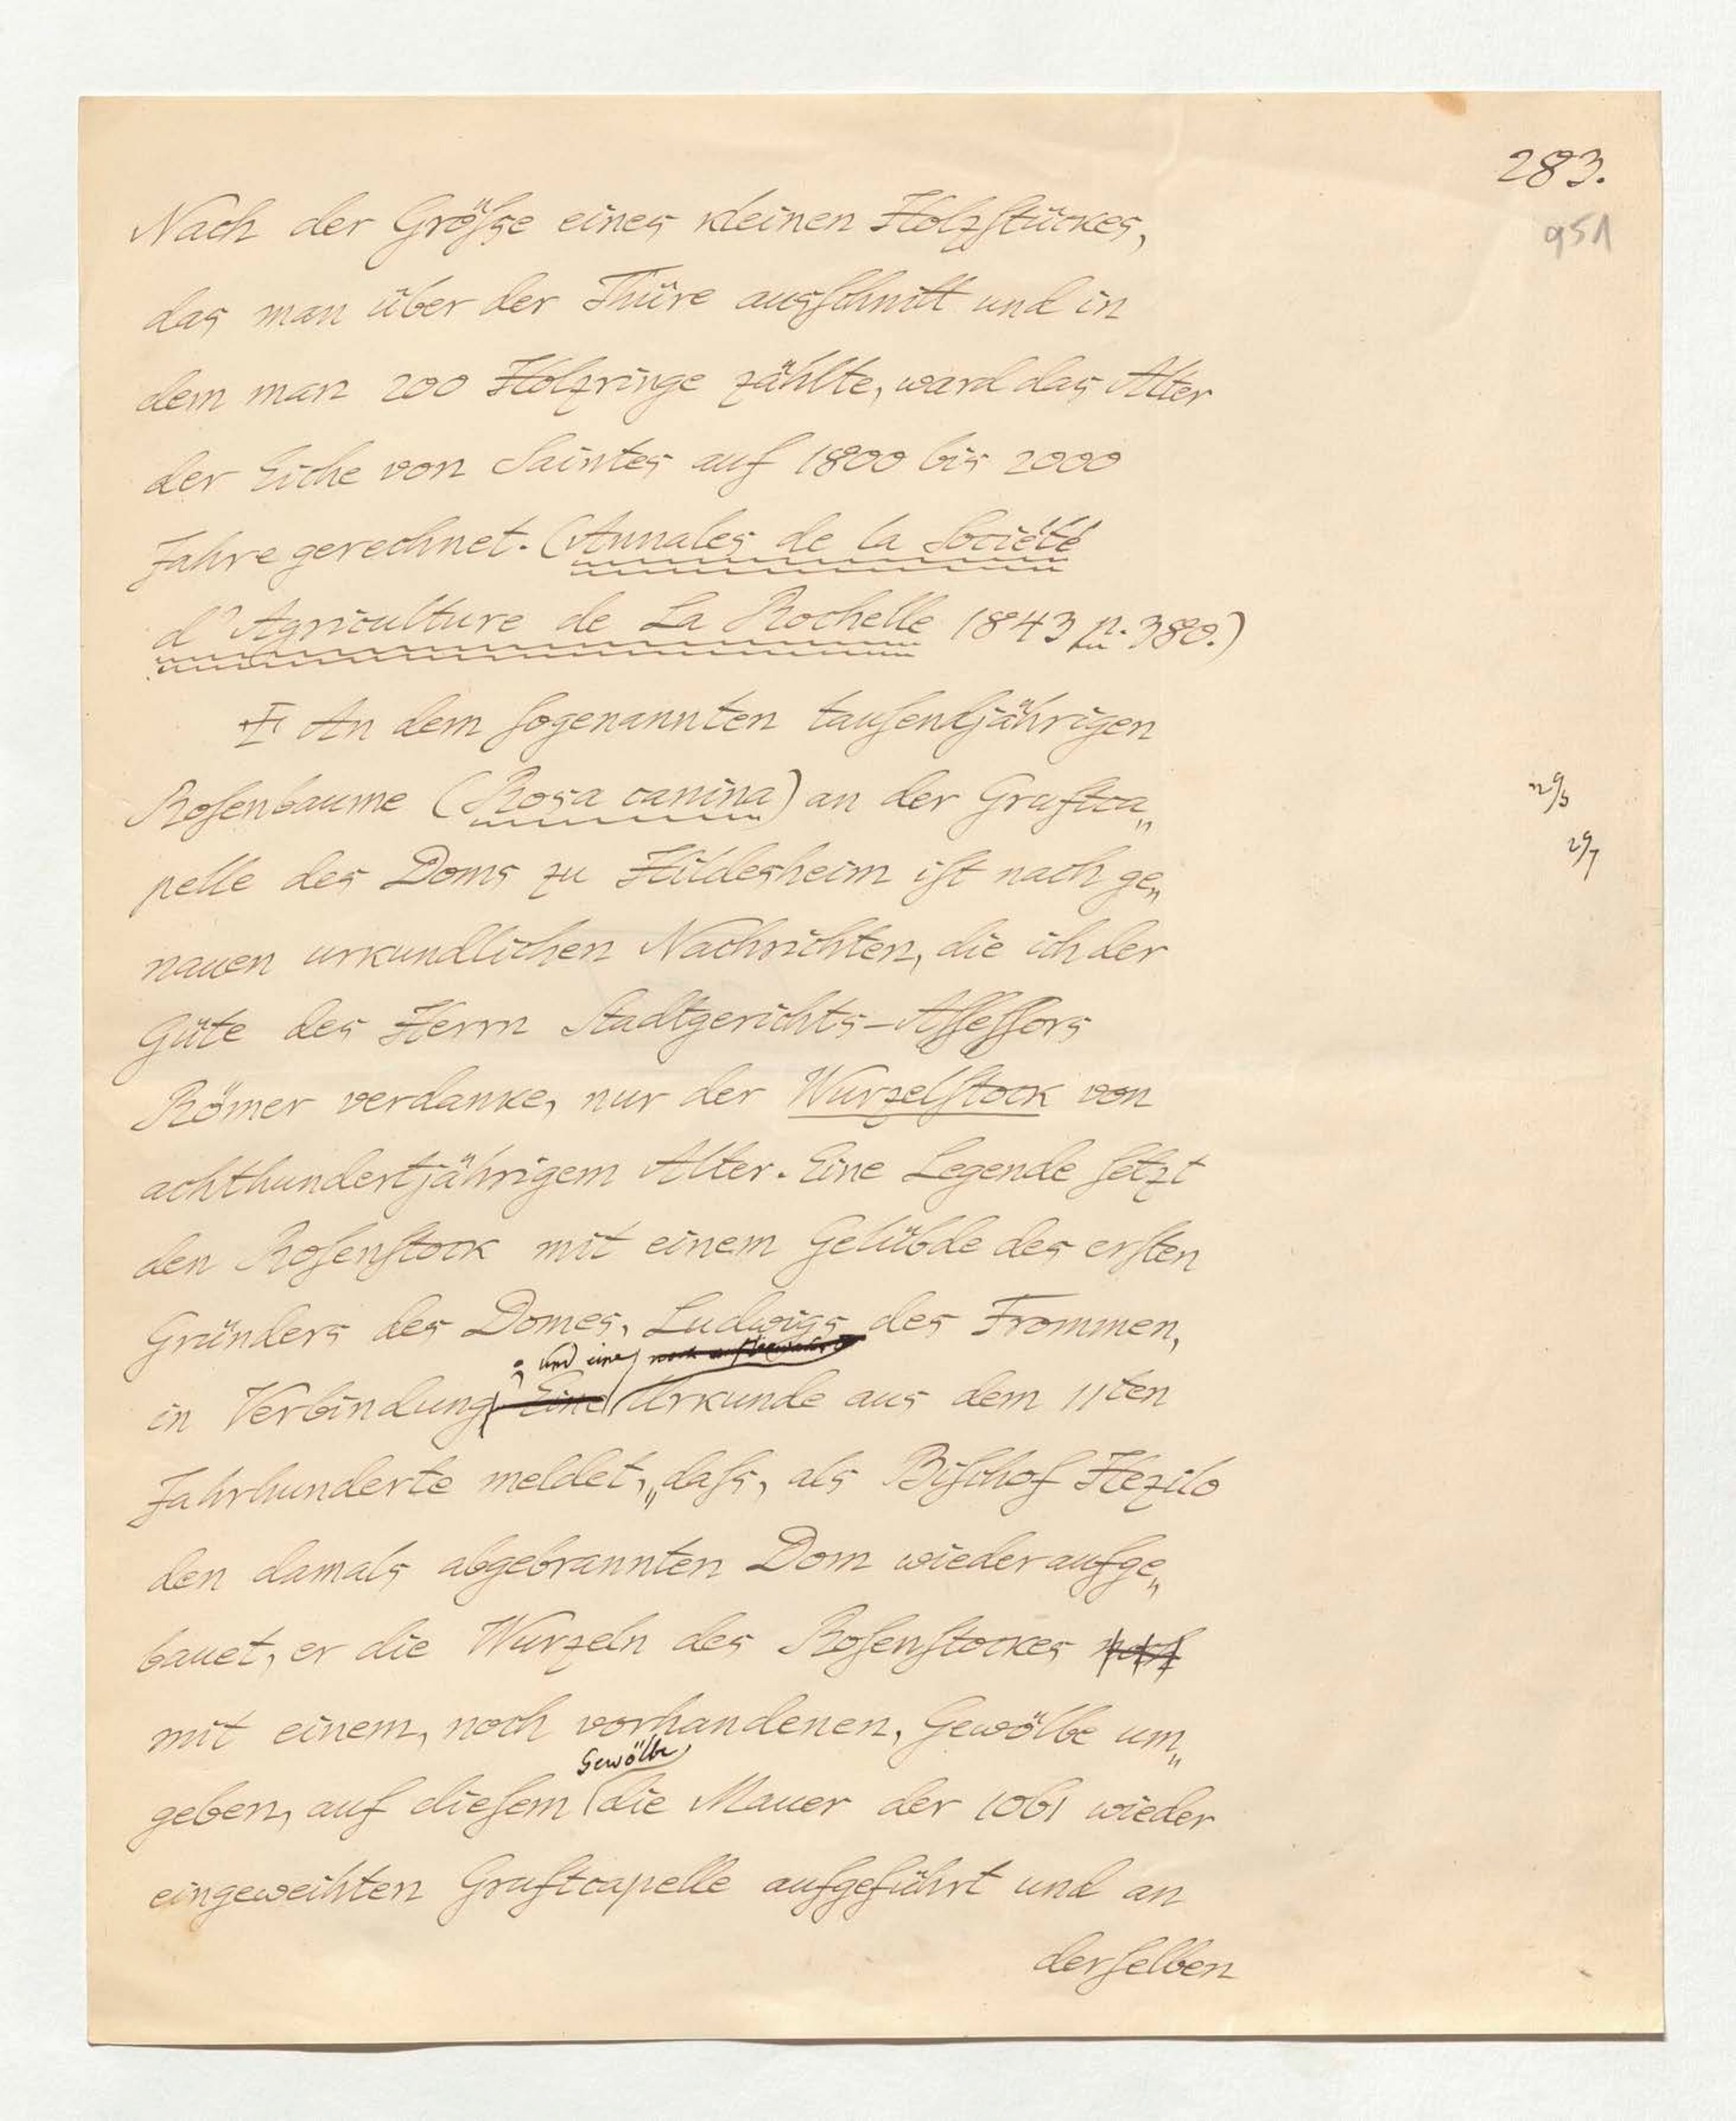 283.
951
Nach der Größe eines kleinen Holzstückes,
das man über der Thüre ausschnitt und in
dem man 200 Holzringe zählte, ward das Alter
der Eiche von Saintes auf 1800 bis 2000
Jahre gerechnet. (Annales de la Société
d'Agriculture de La Rochelle 1843 p. 380.)
An dem sogenannten tausendjährigen
Rosenbaume (Rosa canina) an der Gruftca„
pelle des Doms zu Hildesheim ist nach ge„
nauen urkundlichen Nachrichten, die ich der
Güte des Herrn Stadtgerichts-Assessors
Römer verdanke, nur der Wurzelstock von
achthundertjährigem Alter. Eine Legende setzt
den Rosenstock mit einem Gelübde des ersten
Gründers des Domes, Ludwigs des Frommen,
; und eine
in Verbindung Eine Urkunde aus dem 11ten
Jahrhunderte meldet, „daß, als Bischof Hezilo
den damals abgebrannten Dom wieder aufge„
bauet, er die Wurzeln des Rosenstockes noch
mit einem, noch vorhandenen, Gewölbe um„
Gewölbe
geben, auf diesem die Mauer der 1061 wieder
eingeweihten Gruftcapelle aufgeführt und an
derselben